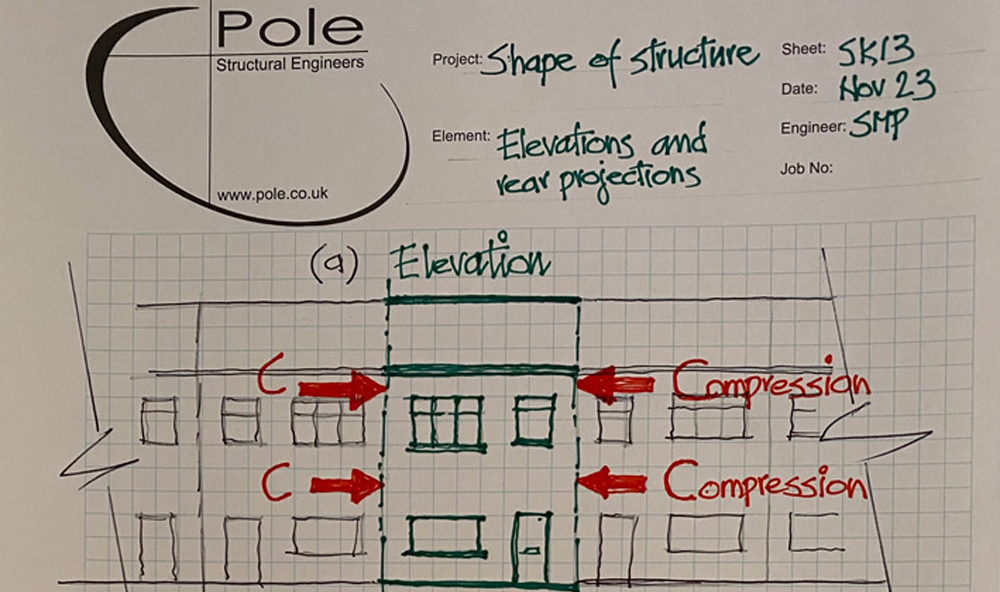 Pole
Structural Engineers
www.pole.co.uk
Project: Shape of structure
Element: Elevations and
rear projections
Sheet: SK13
Date: Nov 23
Engineer: SMP
Job No:
(a) Elevation
C Compression
C Compression